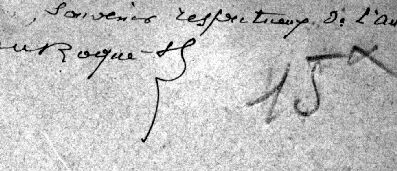 Souvenir respectueux de l'au
Roque
15